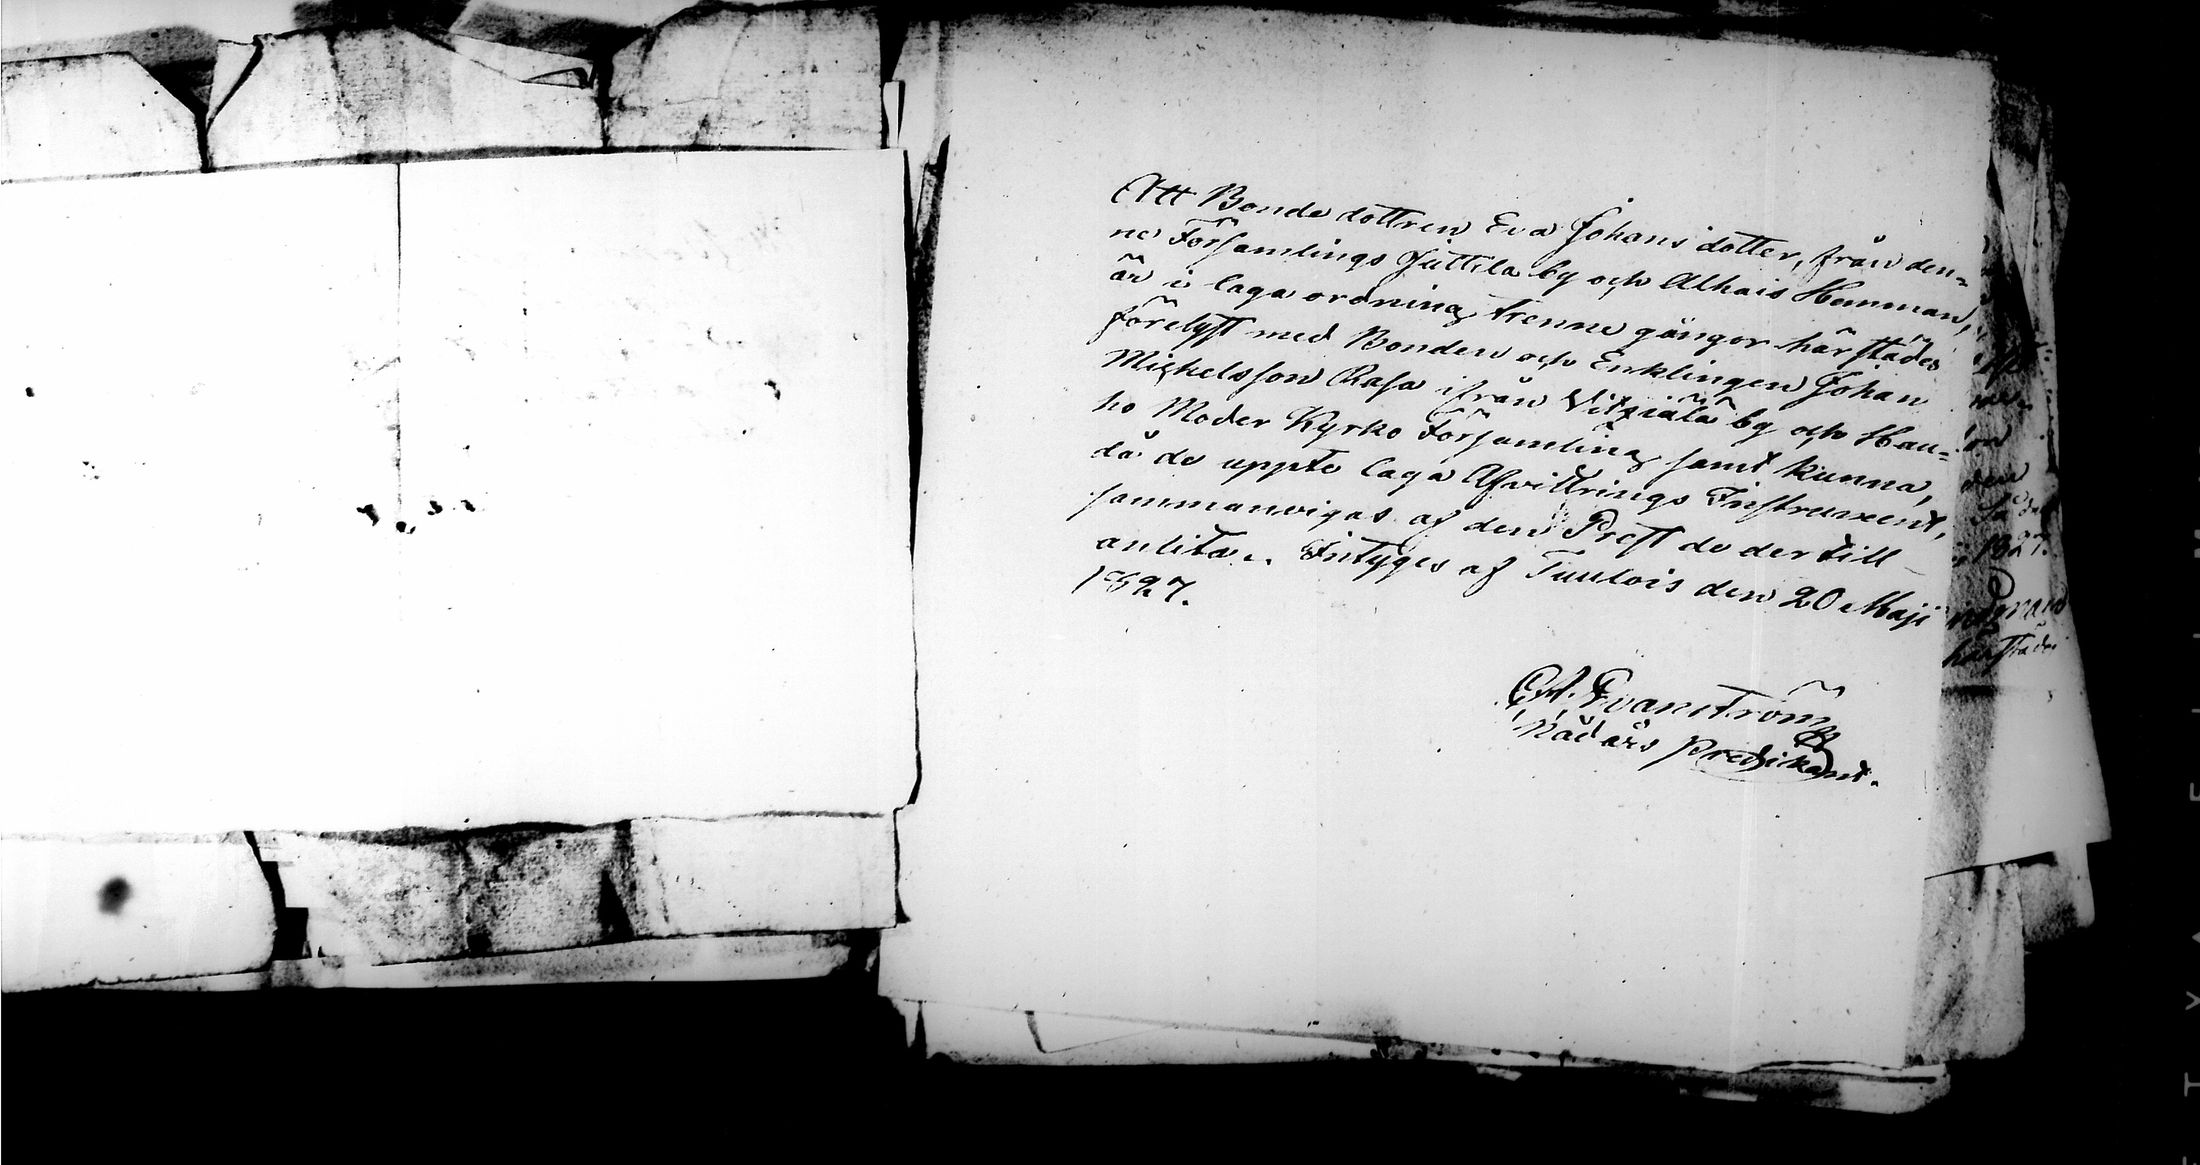 Att Bonde dottren Eva Johans dotter, från den=
ne Församlings Juttila by och Alhais Hemman,
är i laga ordning trenne gångor härstädes
förelyst med Bonden och Enklingen Johan
Michelsson Rasa ifrån Vitziälä by och Hau=
ho Moder Kyrko Församling samt kunna,
då de uppte laga Afvittrings Instrument,
sammanvigas af den Prest de der till
anlita. Intyges af Tuulois den 20 Maji
1827.
Nådårs Predikant.
1827.
härstädes